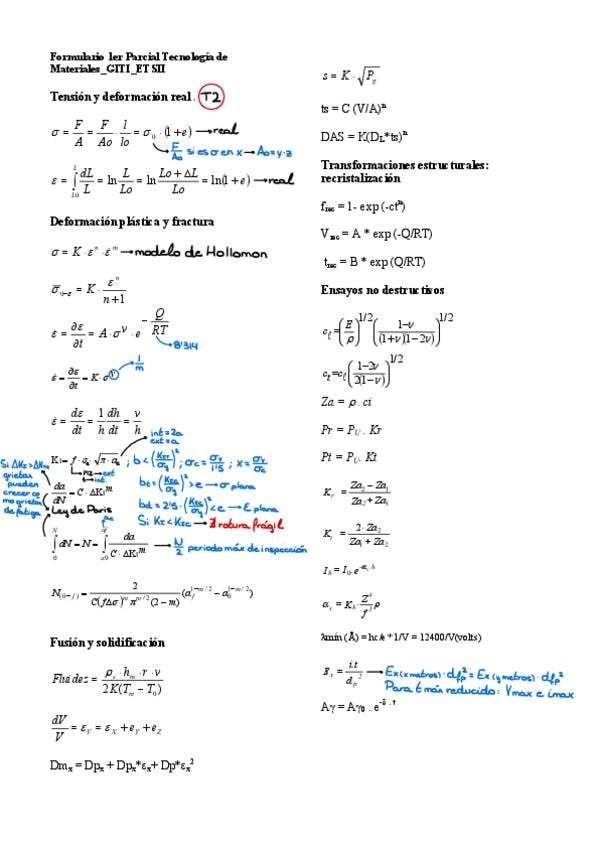 Formulario 1er Parcial Tecnología de
Materiales_GITI_ETSII
Tensión y deformación real. T2
σ = F/A = F/Ao · l/lo = σ₀ · (1+e) → real
F/Ao si es σ en x → Ao = y·z
ε = ∫_{L0}^{L} dL/L = ln L/Lo = ln (Lo + ΔL)/Lo = ln(1+e) → real
Deformación plástica y fractura
σ = K · εⁿ · ε̇ᵐ → modelo de Hollomon
σ̄₀₋ε = K · εⁿ/(n+1)
ε = ∂ε/∂t = A · σᵛ · e^(-Q/RT)
→ 8'314
ε̇ = ∂ε/∂t = K · σ
1/m
ε̇ = dε/dt = 1/h dh/dt = v/h
int = 2a
ext = a
Si ΔKI > ΔKth
grietas
pueden
crecer co
mo grietas
de fatiga
→ ext
→ int
da/dN = C · ΔKIᵐ
Ley de Paris
∫₀ᴺ dN = N = ∫ da/(C · ΔKIᵐ) → N/2 periodo máx de inspección
> e → σ plana
bd = 2'5 · < e → E plana
Si KI < KIC → ∄ rotura frágil
N(0-f) = 2/(C(fΔσ)ᵐ π^(m/2)(2-m)) (a_f^(1-m/2) - a_0^(1-m/2))
Fusión y solidificación
Fluidez = ρₛ · hₘ · r · v / 2K(Tₘ - T₀)
dV/V = εᵥ = εₓ + eᵧ + e_z
Dmₓ = Dpₓ + Dpₓ*εₓ + Dp*εₓ²
s = K · √Pg
ts = C (V/A)ⁿ
DAS = K(D_L*ts)ⁿ
Transformaciones estructurales:
recristalización
f_rec = 1- exp (-ctⁿ)
V_rec = A * exp (-Q/RT)
t_rec = B * exp (Q/RT)
Ensayos no destructivos
c_ℓ = (E/ρ)^1/2 ((1-ν)/((1+ν)(1-2ν)))^1/2
c_t = c_ℓ ((1-2ν)/(2(1-ν)))^1/2
Za = ρ . ci
Pr = P_U . Kr
Pt = P_U . Kt
K_r = (Za₂ - Za₁)/(Za₂ + Za₁)
K_t = 2 · Za₂/(Za₁ + Za₂)
λmin (Å) = hc/e * 1/V = 12400/V(volts)
= i.t/d_p² → Ex (x metros) · dfp² = Ex (y metros) · dfp²
Para t más reducido: Vmax e imax
Aγ = Aγ₀ . e^(-δ . t)